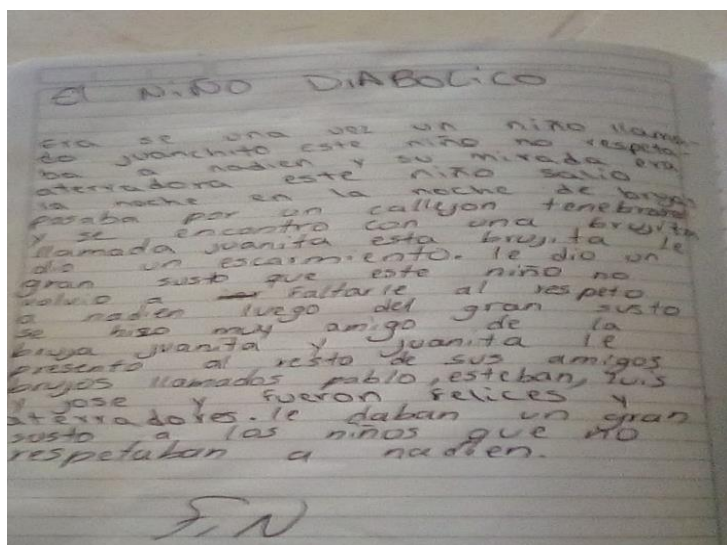 El NiÑO DiABOLiCO
Era se una vez un niño llama-
do juanchito este niño no respeta-
ba a nadien y su mirada era
aterradora este niño salio
la noche en la noche de brujas
pasaba por un callejon tenebroso
y se encontro con una brujita
llamada juanita esta brujita le
dio un escarmiento. le dio un
gran susto que este niño no
volvio a faltarle al respeto
a nadien luego del gran susto
se hiso muy amigo de la
bruja juanita y juanita le
presento al resto de sus amigos
brujos llamados pablo, esteban, luis
y jose y fueron felices y
aterradores. le daban un gran
susto a los niños que no
respetaban a nadien.
FiN